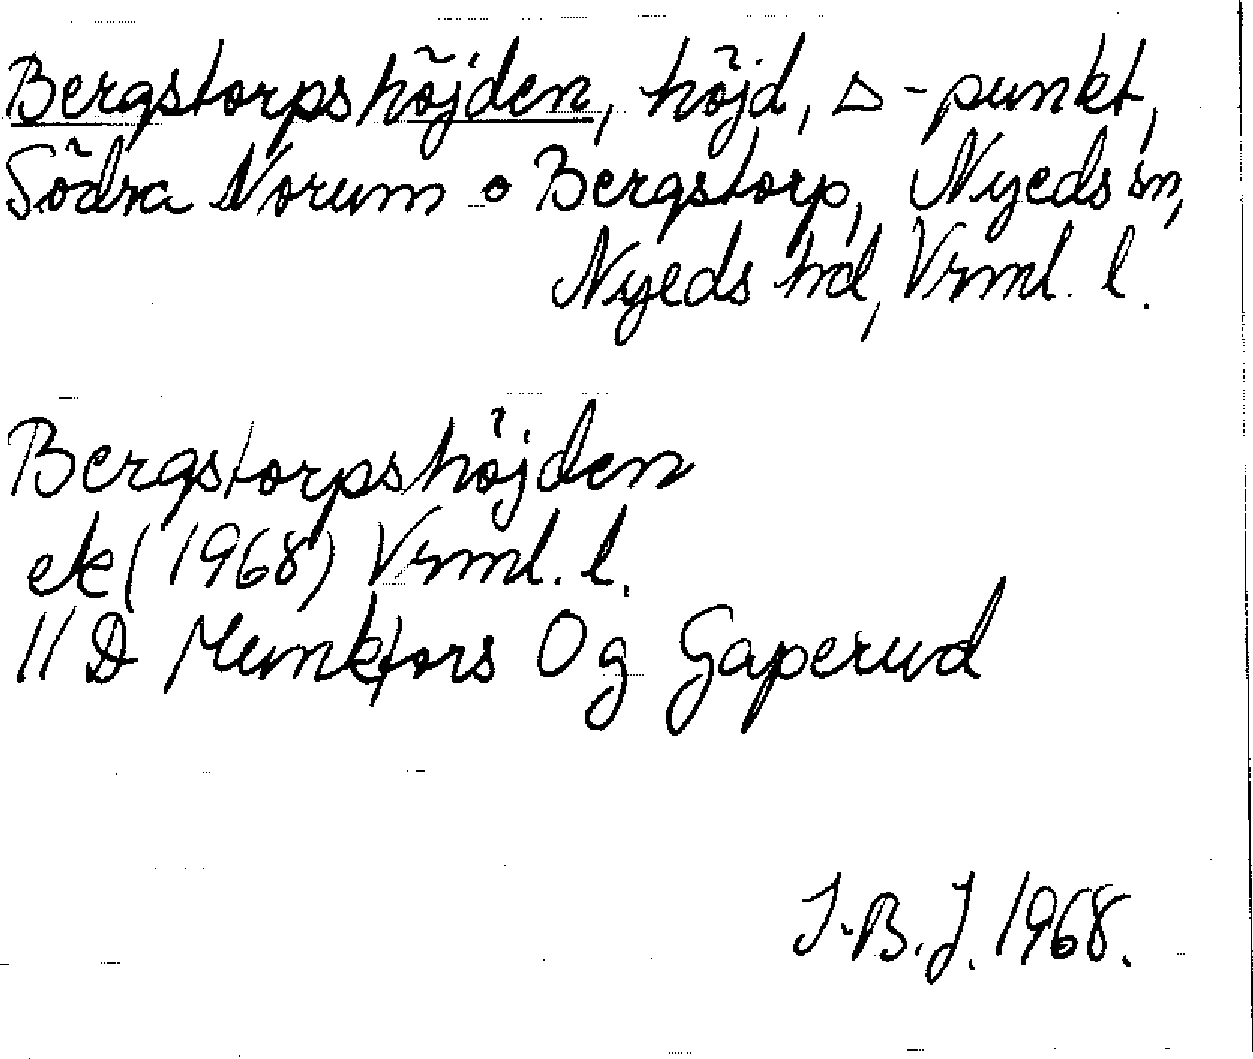 Bergstorpshöjden, höjd, △-punkt,
Södra Norum o Bergstorp, Nyeds sn,
Nyeds hd, Vrml. l.
Bergstorpshöjden
ek (1968) Vrml. l.
11 D Munkfors 0 g Gaperud
I.B.J. 1968.